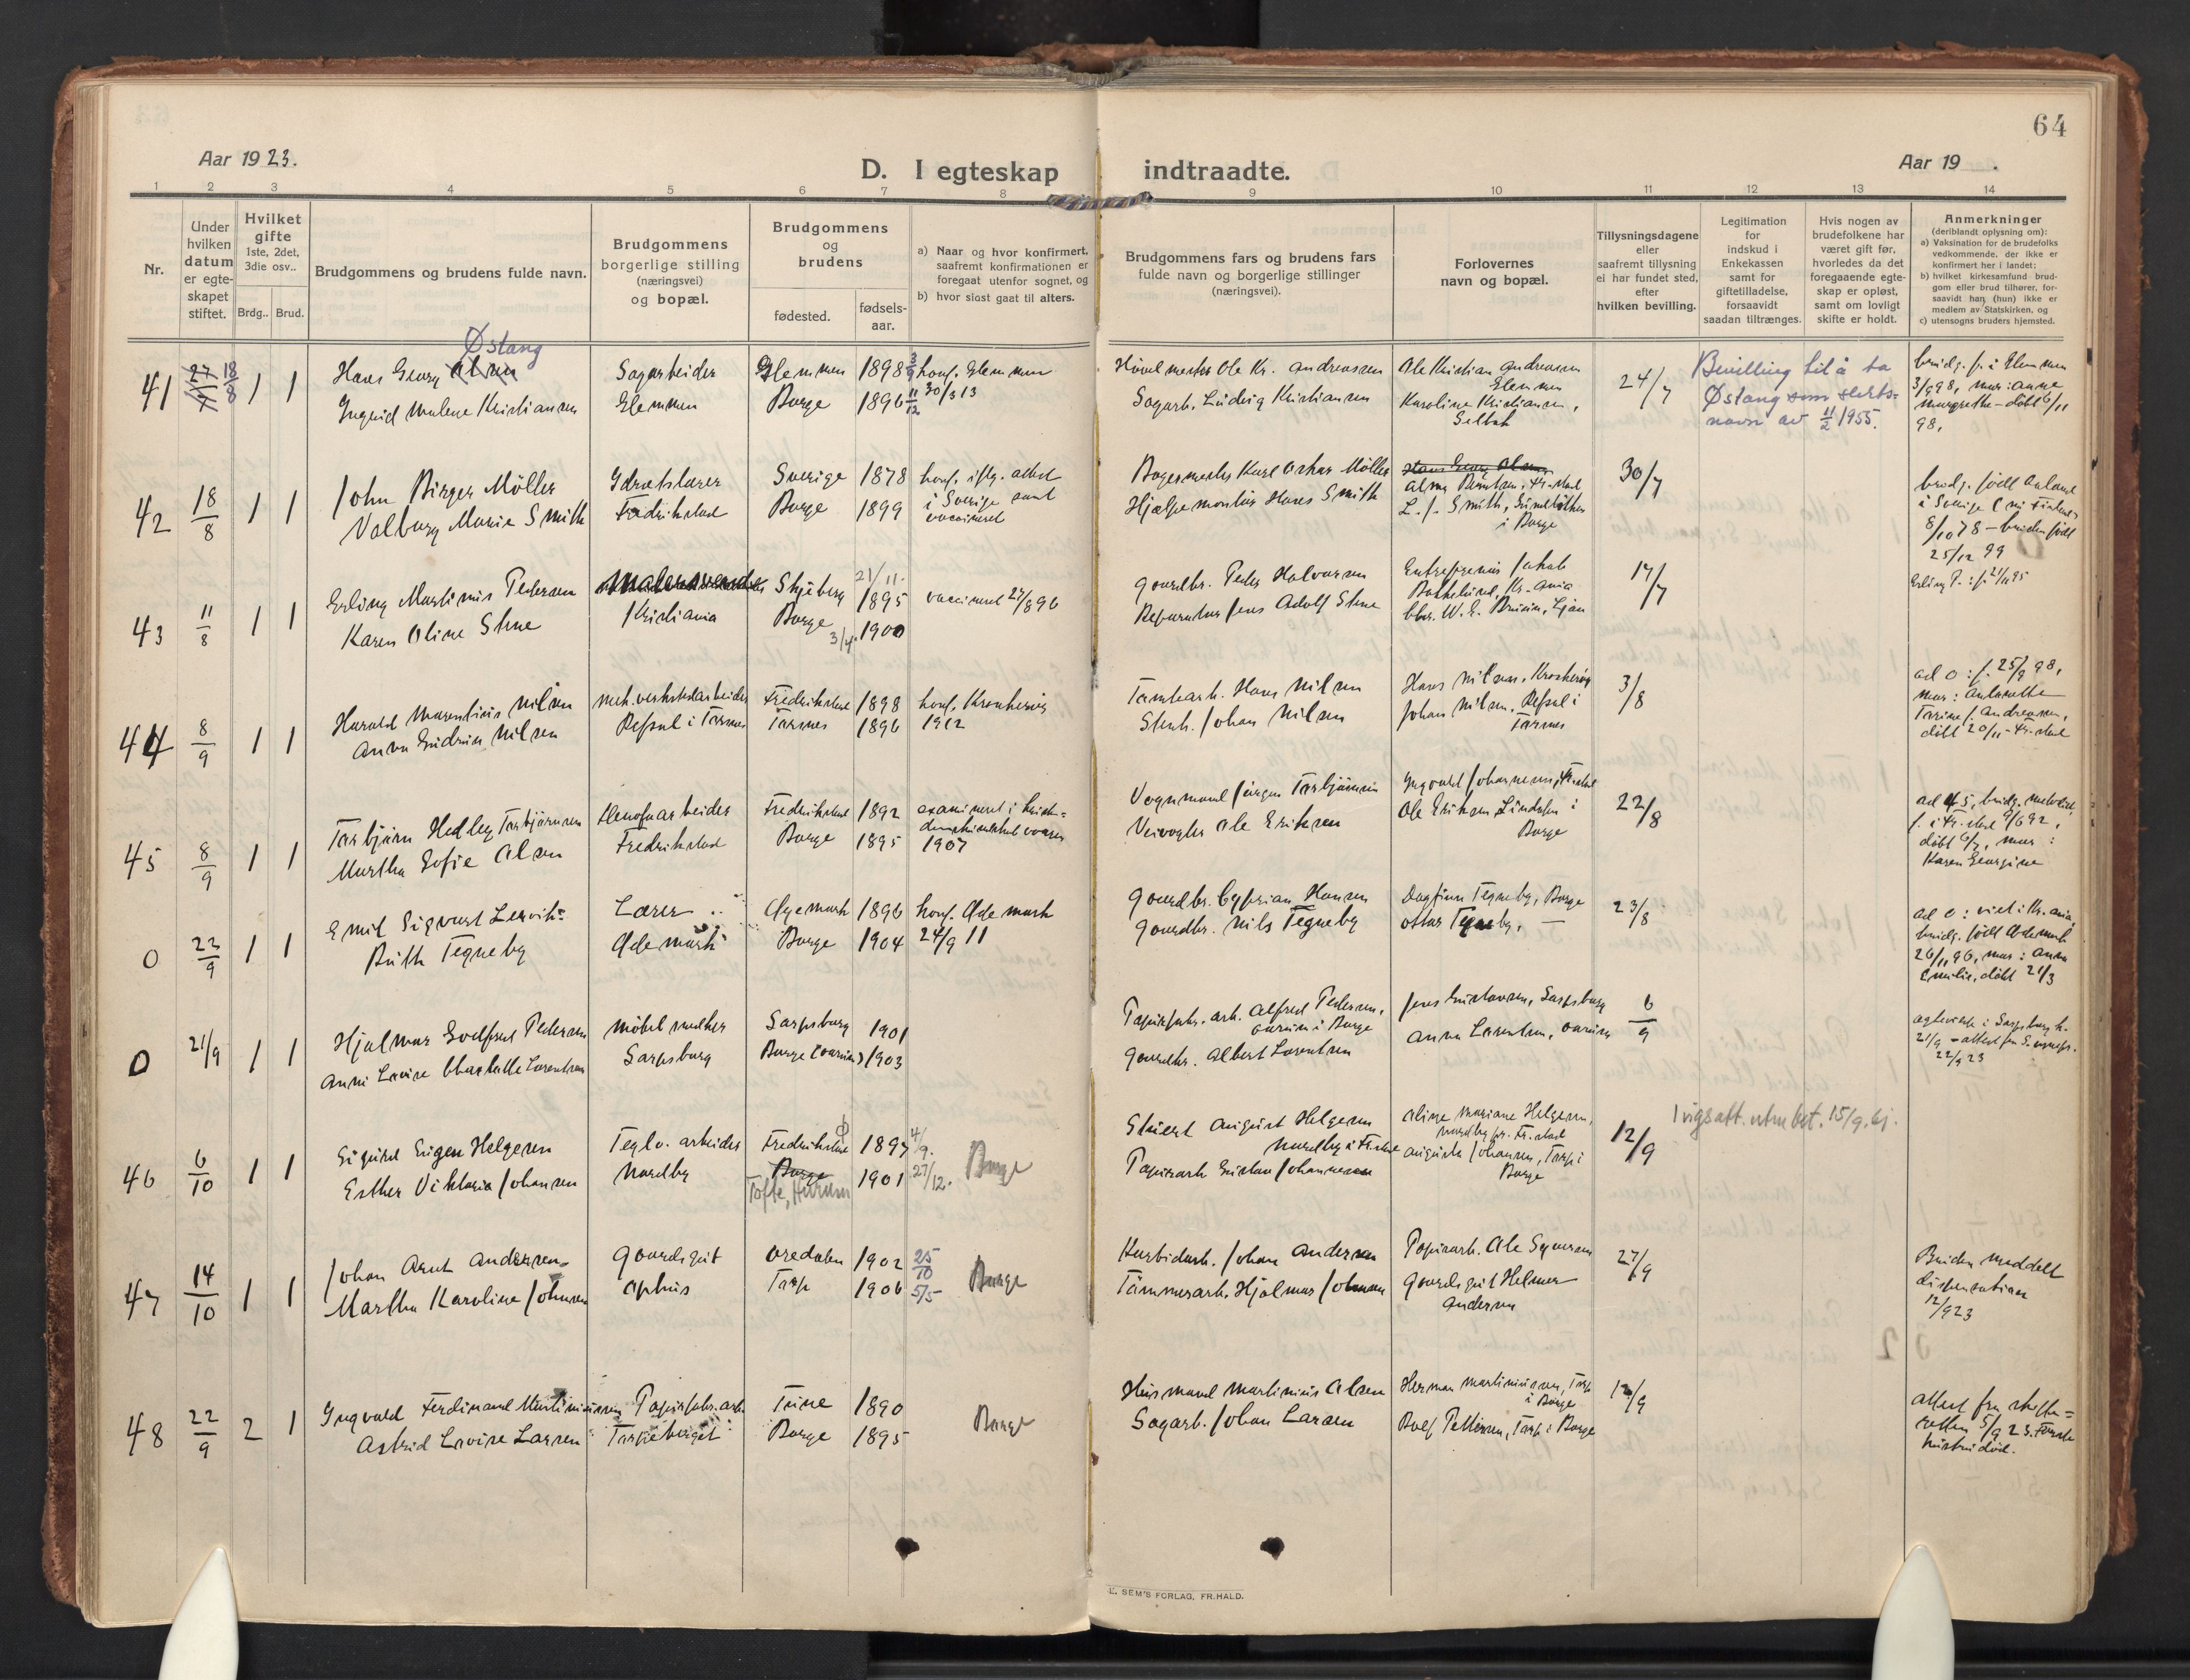 64
Aar 1923.
D. I egteskap indtraadte.
Aar 19 .
1 2 3 4 5 6 7 8 9 10 11 12 13 14
Nr.
Under
hvilken
datum
er egte-
skapet
stiftet.
Hvilket
gifte
1ste, 2det,
3die osv..
Brdg.. Brud.
Brudgommens og brudens fulde navn.
Brudgommens
borgerlige stilling
(næringsvei)
og bopæl.
Brudgommens
og
brudens
fødested.
fødsels-
aar.
a) Naar og hvor konfirmert,
saafremt konfirmationen er
foregaat utenfor sognet, og
b) hvor sidst gaat til alters.
Brudgommens fars og brudens fars
fulde navn og borgerlige stillinger
(næringsvei).
Forlovernes
navn og bopæl.
Tillysningsdagene
eller
saafremt tillysning
ei har fundet sted,
efter
hvilken bevilling.
Legitimation
for
indskud i
Enkekassen
samt for
giftetilladelse,
forsaavidt
saadan tiltrænges.
Hvis nogen av
brudefolkene har
været gift før,
hvorledes da det
foregaaende egte-
skap er opløst,
samt om lovligt
skifte er holdt.
Anmerkninger
(deriblandt oplysning om):
a) Vaksination for de brudefolks
vedkommende, der ikke er
konfirmert her i landet;
b) hvilket kirkesamfund brud-
gom eller brud tilhører, for-
saavidt han (hun) ikke er
medlem av Statskirken, og
c) utensogns bruders hjemsted.
41 18/8 1 1
Østang
Hans Georg Olsen
Ingrid Malene Kristiansen
Sagarbeider
Glemmen
Glemmen 1898 3/9
Borge 1896 11/12
konf. Glemmen
30/3 13
Høvelmester Ole Kr. Andreassen
Sagarb. Ludvig Kristiansen
Ole Kristian Andreasen
Glemmen
Karoline Kristiansen,
Selbak
24/7
Bevilling til å ta
Østang som slekts-
navn av 11/2 1955.
brudg. f. i Glemmen
3/9 98, mor: Anne
Margrethe - døbt 6/11
98.
42 18/8 1 1
John Birger Möller
Valborg Marie Smith
Idrætslærer
Fredrikstad
Sverige 1878
Borge 1899
konf. iflg. attest
i Sverige samt
vaccineret
Bagermester Karl Oskar Möller
Hjælpemontør Hans Smith
Hans Georg Olsen
L. J. Smith,
i Borge
30/7
brudg. født
i Sverige
8/10 78 - bruden født
25/12 99
43 11/8 1 1
Erling Martinius Pedersen
Karen Oline Stene
Malersvend
Kristiania
Skjeberg 21/11. 1895
Borge 3/4. 1900
vaccineret 27/8 96
Gaardbr. Peder Halvorsen
Reparatør Jens Adolf Stene
Entreprenør Jakob
Kr.ania
17/7
Erling P.: f. 21/11 95
44 8/9 1 1
Harald Marentius Nilsen
Anna Gudrun Nilsen
Mek. verkstedarbeider
Refsal i Torsnes
Fredrikstad 1898
Torsnes 1896
konf. Kraakerøy
1912
Tomtearb. Hans Nilsen
Stenh. Johan Nilsen
Hans Nilsen, Kraakerøy
Johan Nilsen, Refsal i
Torsnes
3/8
ad o: f. 25/9 98,
mor:
f. Andreasen,
døbt 20/11 - Fr.stad
45 8/9 1 1
Torbjørn Hedley Torbjørnsen
Martha Sofie Olsen
Fredrikstad
Fredrikstad 1892
Borge 1895
examineret i
1907
Vognmand Jørgen Torbjørnsen
Veivogter Ole Eriksen
Ingvald Johannesen, Fr.stad
Ole Eriksen Lindalen i
Borge
22/8
ad 45, brudg. metodist,
f. i Fr.stad 9/6 92,
døbt 6/7, mor:
Karen Georgine
0 22/9 1 1
Emil Sigvart Lervik
Ruth Tegneby
Lærer
Ødemark
Øyemark 1896
Borge 1904
konf. Ødemark
24/9 11
Gaardbr. Cyprian Hansen
Gaardbr. Nils Tegneby
Dagfinn Tegneby, Borge
Ottar Tegneby, —
23/8
ad o: viet i Kr.ania,
brudg. født Ødemark
26/11 96, mor: Anna
Emilie, døbt 21/3
0 21/9 1 1
Hjalmar Godtfred Pedersen
Anni Lovise Charlotte Lorentsen
Møbelsnedker
Sarpsborg
Sarpsborg 1901
Borge 1903
Papirfabr. arb. Alfred Pedersen,
i Borge
Gaardbr. Albert Lorentsen
Jens Gustavsen, Sarpsborg
Anna Lorentsen,
6/9
egteviede i Sarpsborg k.
21/9 - attest fra S. sognepr.
22/9 23
46 6/10 1 1
Sigurd Eugen Helgesen
Esther Viktoria Johansen
Teglv. arbeider
Nordby
Fredrikstad 1897 4/9.
Borge
Tofte, Hurum 1901 27/12.
Borge
Stuert August Helgesen
Nordby i Fr.stad
Papirarb. Gustav Johannesen
Oline Mariane Helgesen,
Nordby pr. Fr.stad
Augusta Johansen, Torp i
Borge
12/9
Vigsatt. utm bet. 15/9.
47 14/10 1 1
Johan Arnt Andersen
Martha Karoline Johnsen
Gaardsgut
Ophus
Oredalen 1902 25/10
Torp 1906 5/5
Borge
Karbidarb. Johan Andersen
Tømmerarb. Hjalmar Johnsen
Papirarb. Ole Syversen
Gaardsgut Helmer
Andersen
27/9
Bruden meddelt
dispensation
12/9 23
48 22/9 2 1
Ingvald Ferdinand Martiniussen
Astrid Lovise Larsen
Papirfabr. arb.
Torpeberget
Tune 1890
Borge 1895
Borge
Husmand Martinius Olsen
Sagarb. Johan Larsen
Herman Martiniussen, Torp
i Borge
Rolf Pettersen, Torp i Borge
12/9
attest fra skifte-
retten 5/9 23. Første
hustru død.
E. SEM'S FORLAG, FR.HALD.